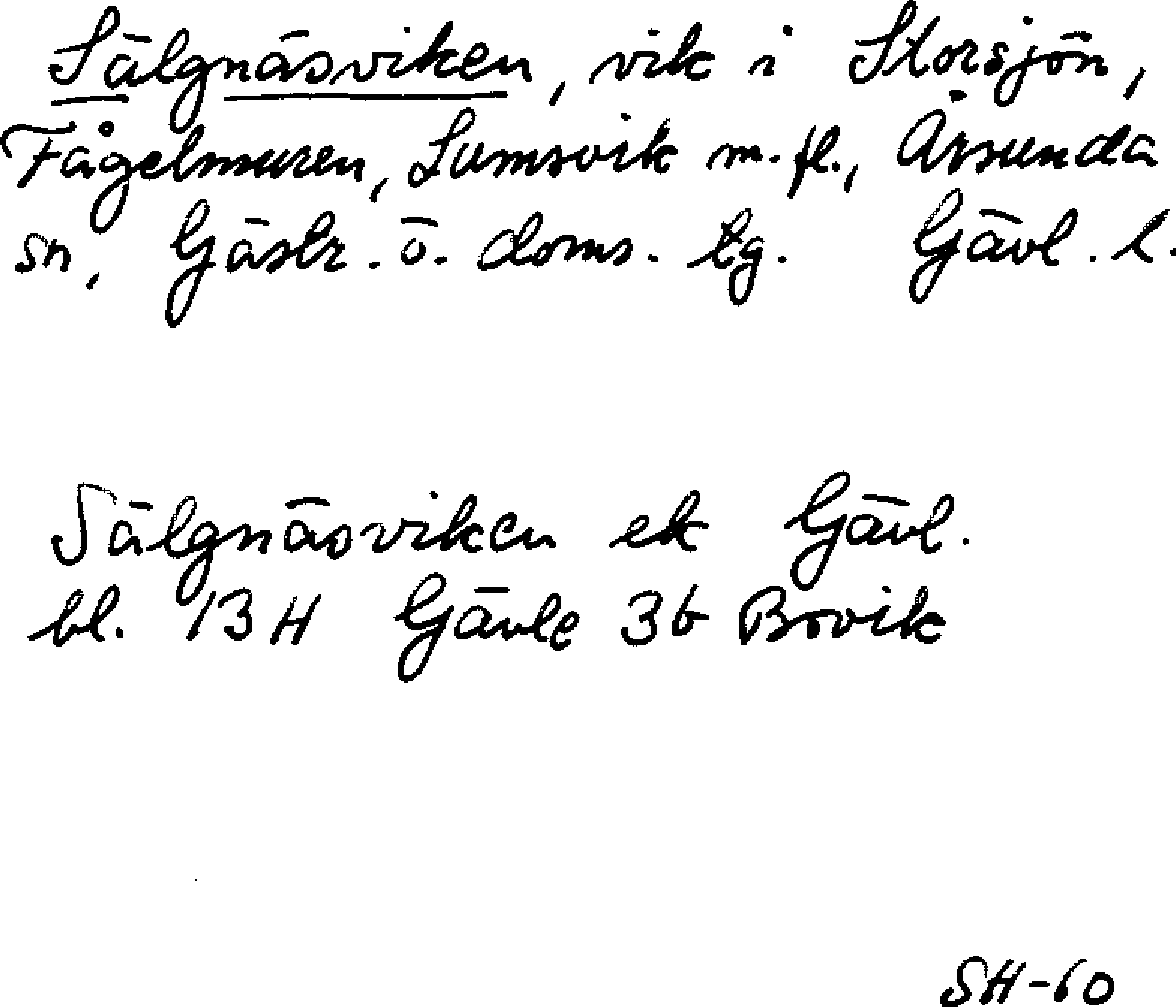 Sälgnäsviken, vik i Storsjön,
Fågelmuren, Lumsvik m.fl., Årsunda
sn, Gästr. ö. doms. lg. Gävl. l.
Sälgnäsviken ek Gävl.
bl. 13H Gävle 3b Brovik
SH-60